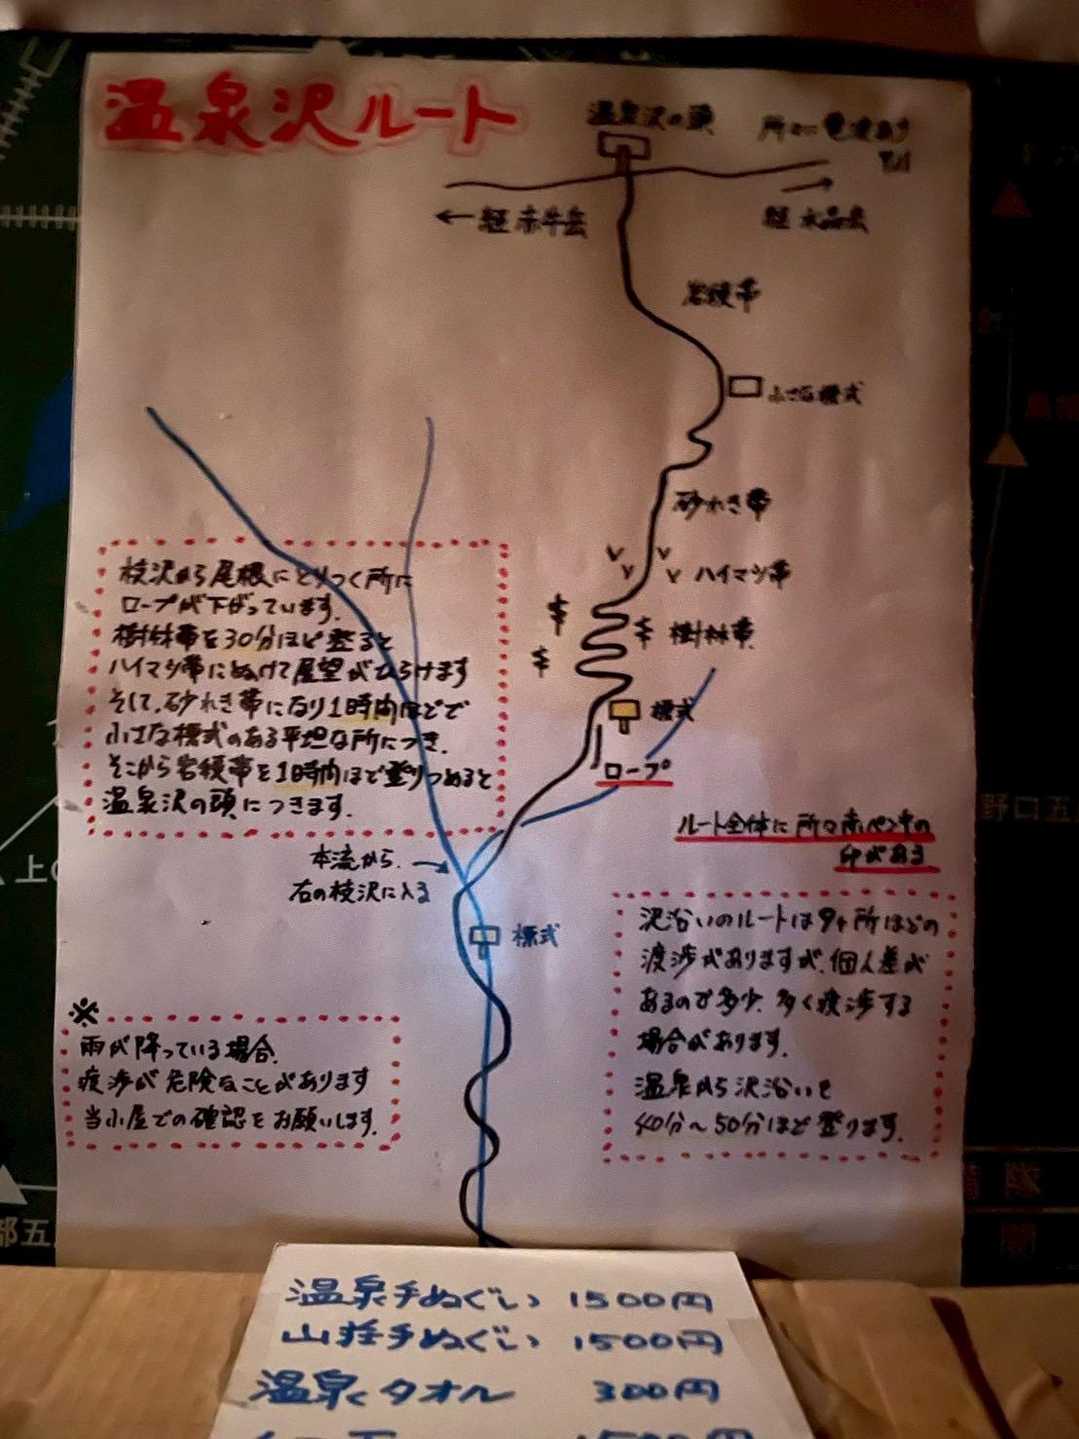 温泉沢ルート
温泉沢の頭
所々に電波あり
← 経 赤牛岳
経 水晶岳
岩稜帯
小さな標式
砂れき帯
ハイマツ帯
樹林帯
標式
ロープ
枝沢から尾根にとりつく所に
ロープが下がっています。
樹林帯を30分ほど登ると
ハイマツ帯にぬけて展望がひらけます
そして、砂れき帯になり1時間ほどで
小さな標式のある平坦な所につき、
そこから岩稜帯を1時間ほど登りつめると
温泉沢の頭につきます。
ルート全体に所々赤ペンキの
印がある
本流から
右の枝沢に入る
標式
沢沿いのルートは9ヶ所ほどの
渡渉がありますが、個人差が
あるので多少、多く渡渉する
場合があります。
温泉から沢沿いを
40分〜50分ほど登ります。
※
雨が降っている場合、
渡渉が危険なことがあります
当小屋での確認をお願いします。
野口五
上
部五
温泉手ぬぐい 1500円
山荘手ぬぐい 1500円
温泉タオル 300円